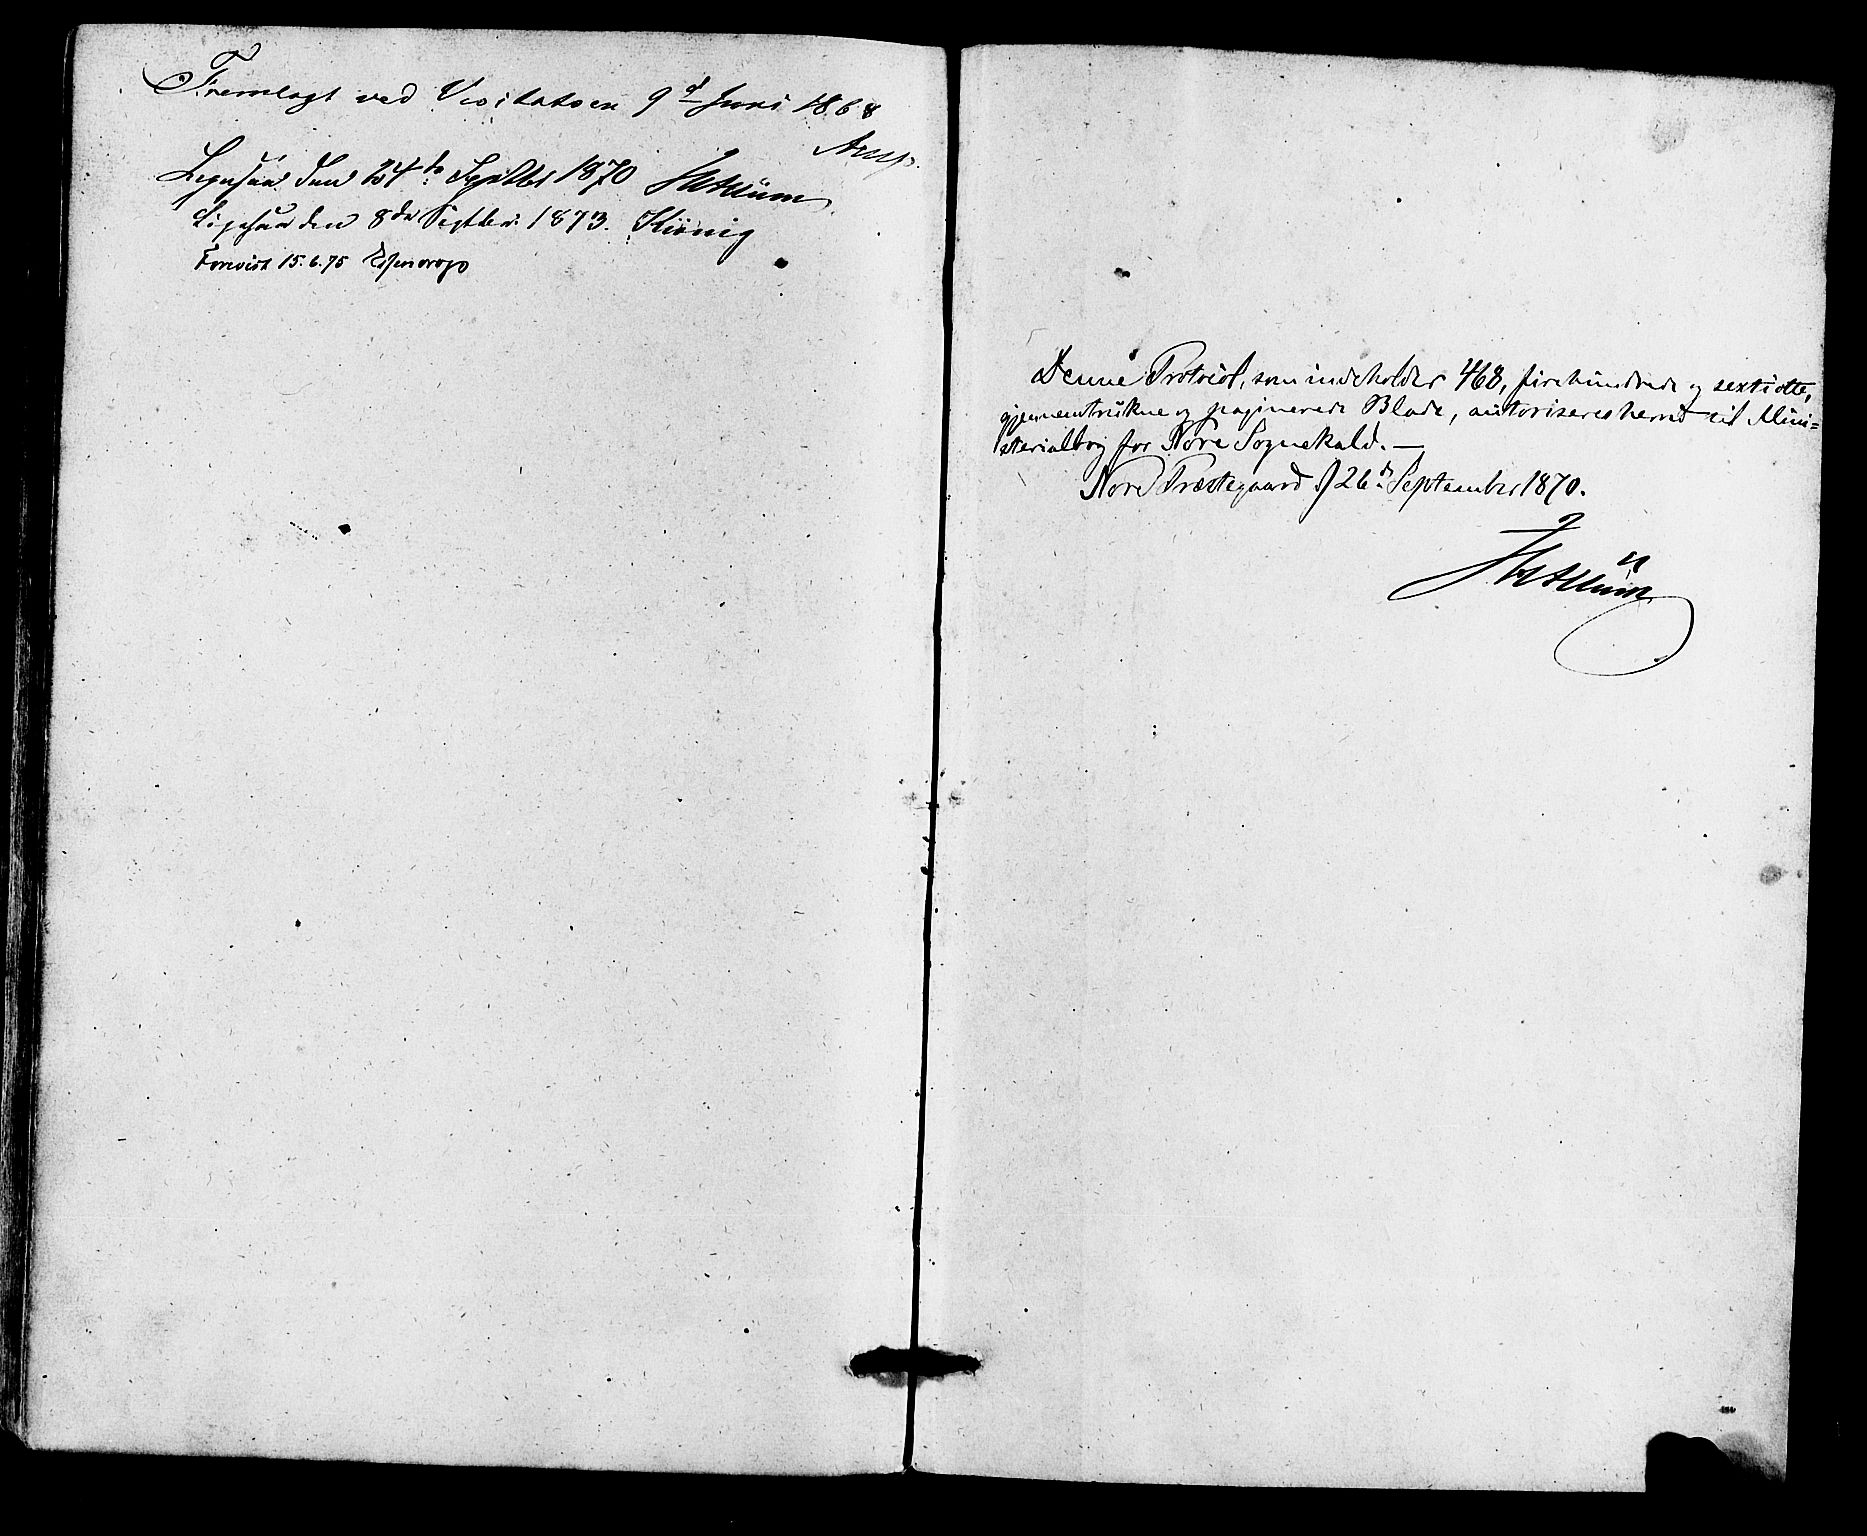 Fremlagt ved Visitatsen 9d Juni 1868
Arup.
Ligesaa den 24de Septbr 1870
Ligesaa den 8de Septber. 1873. König
Forevist 15.6.75
Denne Protocol, som indeholder 468, firehundrede og sextiotte,
gjennemtrukne og paginerede Blade, autoriseres herved til Mini=
sterialbog for Nore Sognekald. —
Nore Præstegaard d 26de September 1870.